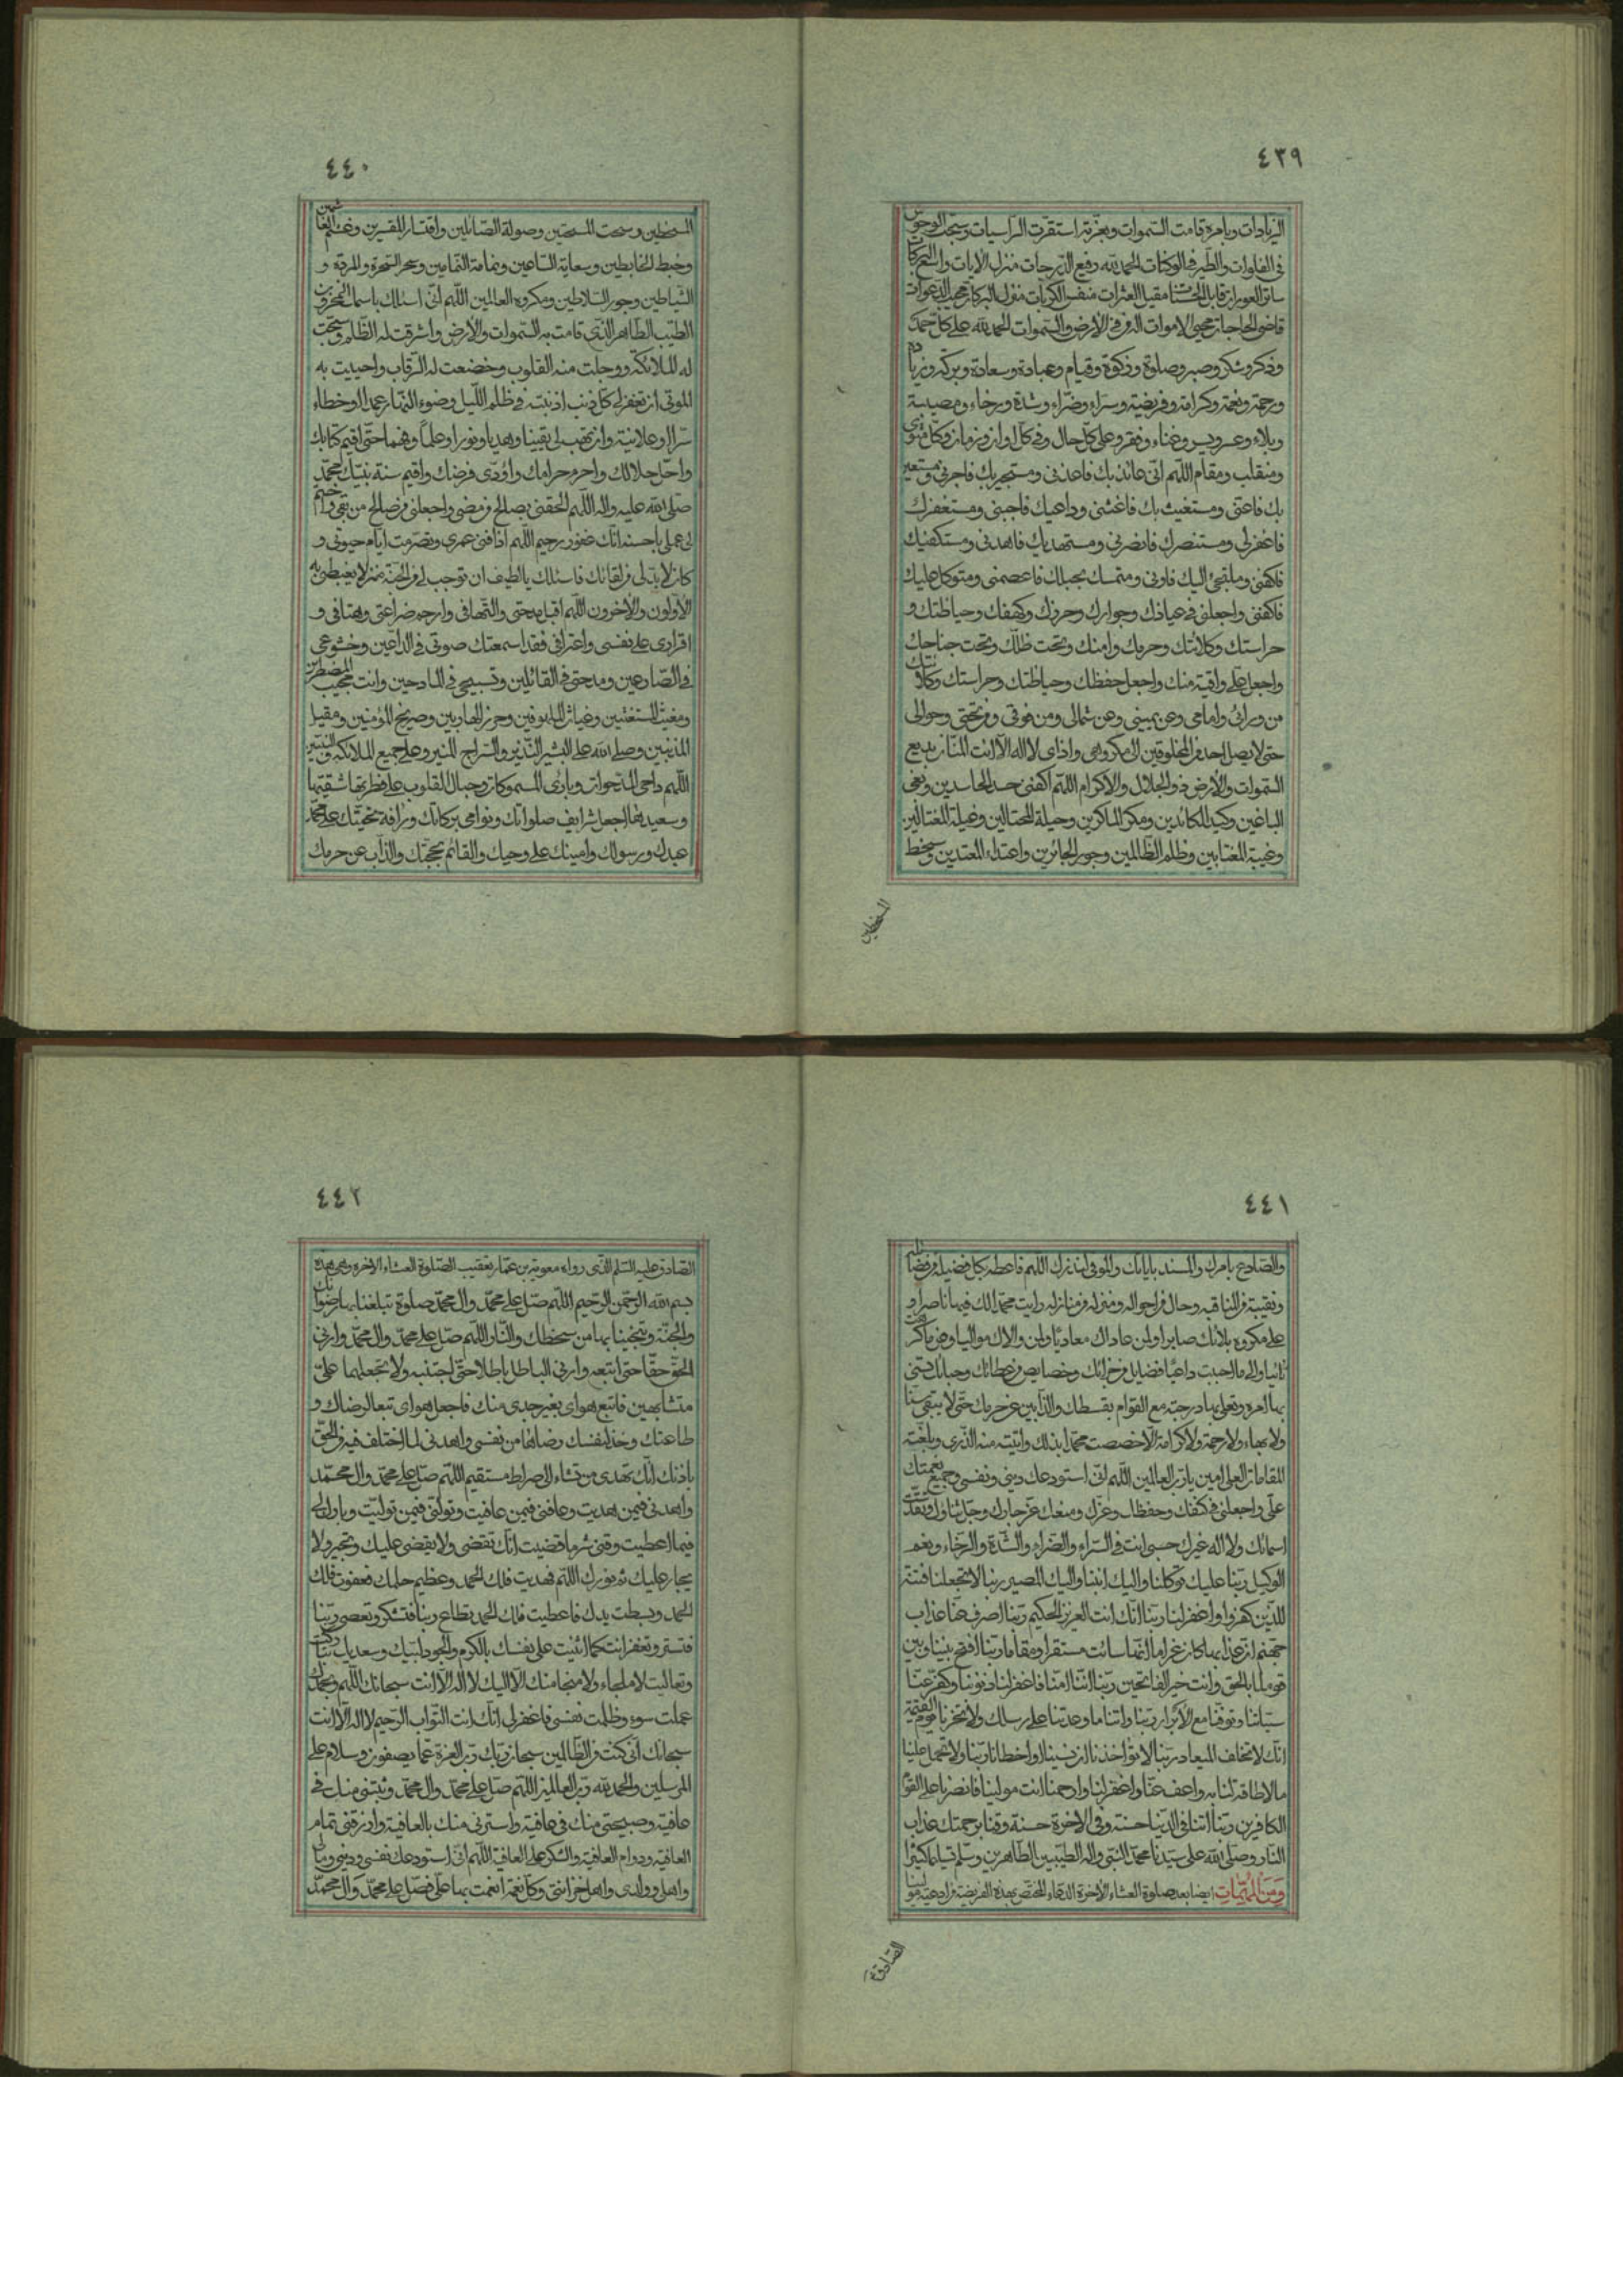 ٤٣٩
الزيادات وبامره قامت السموات وبعزته استقرت الراسيات وسبحت الوحوش
فى الفلوات والطير فى الوكنات الحمد لله رفيع الدرجات منزل الايات واسع البركات
ساتر العورات قابل الحسنات مقيل العثرات منفس الكربات منزل البركات مجيب الدعوات
قاضى الحاجات محيى الاموات اله من فى الارض والسموات الحمد لله على كل حمد
وذكر وشكر وصبر وصلوة وزكوة وقيام وعبادة وسعادة وبركة وزيادة
ورحمة ونعمة وكرامة وفريضة وسراء وضراء وشدة ورخاء ومصيبة
وبلاء وعسر ويسر وغناء وفقر وعلى كل حال وفى كل اوان وزمان وكل مثوى
ومنقلب ومقام اللهم انى عائذ بك فاعذنى ومستجير بك فاجرنى ومستعين
بك فاعنى ومستغيث بك فاغثنى وداعيك فاجبنى ومستغفرك
فاغفرلى ومستنصرك فانصرنى ومستهديك فاهدنى ومستكفيك
فاكفنى وملتجئ اليك فاونى ومتمسك بحبلك فاعصمنى ومتوكل عليك
فاكفنى واجعلنى فى عياذك وجوارك وحرزك وكهفك وحياطتك و
حراستك وكلائتك وحرمك وامنك وتحت ظلك وتحت جناحك
واجعل على واقية منك واجعل حفظك وحياطتك وحراستك وكلائتك
من ورائى وامامى وعن يمينى وعن شمالى ومن فوقى ومن تحتى وحوالى
حتى لا يصل احد من المخلوقين الى مكروهى واذاى لا اله الا انت المنان بديع
السموات والارض ذو الجلال والاكرام اللهم اكفنى حسد الحاسدين وبغى
الباغين وكيد الكائدين ومكر الماكرين وحيلة المحتالين وغيلة المغتالين
وغيبة المغتابين وظلم الظالمين وجور الجائرين واعتداء المعتدين وسخط
المسخطين
٤٤٠
المسخطين وسحت المسحتين وصولة الصائلين واقتسار المقسرين وغشم الغاشمين
وخبط الخابطين وسعاية الساعين ونمامة النمامين وسحر السحرة والمردة و
الشياطين وجور السلاطين ومكروه العالمين اللهم انى اسئلك باسمك المخزون
الطيب الطاهر الذى قامت به السموات والارض واشرقت له الظلم وسبحت
له الملائكة ووجلت منه القلوب وخضعت له الرقاب واحييت به
الموتى ان تغفر لى كل ذنب اذنبته فى ظلم الليل وضوء النهار عمدا او خطاء
سرا او علانية وان تهب لى يقينا وهديا ونورا وعلما وفهما حتى اقيم كتابك
واحل حلالك واحرم حرامك واؤدى فرضك واقيم سنة نبيك محمد
صلى الله عليه واله اللهم الحقنى بصالح من مضى واجعلنى من صالح من بقى واختم
لى عملى باحسنه انك غفور رحيم اللهم اذا فنى عمرى وتصرمت ايام حيوتى و
كان لا بد لى من لقائك فاسئلك يا لطيف ان توجب لى من الجنة منزلا يغبطنى به
الاولون والاخرون اللهم اقبل مدحتى والتهافى وارحم ضراعتى وهتافى و
اقرارى على نفسى واعترافى فقد اسمعتك صوتى فى الداعين وخشوعى
فى الضارعين ومدحتى فى القائلين وتسبيحى فى المادحين وانت مجيب المضطرين
ومغيث المستغيثين وغياث الملهوفين وحرز الهاربين وصريخ المؤمنين ومقيل
المذنبين وصلى الله على البشير النذير والسراج المنير وعلى جميع الملائكة والنبيين
اللهم داحى المدحوات وبارئ المسموكات وجبال القلوب على فطرتها شقيها
وسعيدها اجعل شرايف صلواتك ونوامى بركاتك ورافة تحيتك على محمد
عبدك ورسولك وامينك على وحيك والقائم بحجتك والذاب عن حرمك
٤٤١
والصادع بامرك والمشيد باياتك والموفى لنذرك اللهم فاعطه بكل فضيلة من فضائله
ونقيبة من مناقبه وحال من احواله ومنزلة من منازله رايت محمدا لك فيها ناصرا و
على مكروه بلائك صابرا ولمن عاداك معاديا ولمن والاك مواليا وعن ما كرهت
نائيا والى ما احببت داعيا فضايل من جزائك وخصايص من عطائك وحبائك تسنى
بها امره وتعلى بها درجته مع القوام بقسطك والذابين عن حرمك حتى لا يبقى سنا
ولا بهاء ولا رحمة ولا كرامة الا خصصت محمدا بذلك واتيته منه الذرى وبلغته
المقامات العلى امين يا رب العالمين اللهم انى استودعك دينى ونفسى وجميع نعمتك
على واجعلنى فى كنفك وحفظك وعزك ومنعك عز جارك وجل ثناؤك وتقدست
اسمائك ولا اله غيرك حسبى انت فى السراء والضراء والشدة والرخاء ونعم
الوكيل ربنا عليك توكلنا واليك انبنا واليك المصير ربنا لا تجعلنا فتنة
للذين كفروا واغفر لنا ربنا انك انت العزيز الحكيم ربنا اصرف عنا عذاب
جهنم ان عذابها كان غراما انها سائت مستقرا ومقاما ربنا افتح بيننا وبين
قومنا بالحق وانت خير الفاتحين ربنا اننا امنا فاغفر لنا ذنوبنا وكفر عنا
سيئاتنا وتوفنا مع الابرار ربنا واتنا ما وعدتنا على رسلك ولا تخزنا يوم القيمة
انك لا تخلف الميعاد ربنا لا تؤاخذنا ان نسينا او اخطانا ربنا ولا تحمل علينا
ما لا طاقة لنا به واعف عنا واغفر لنا وارحمنا انت مولينا فانصرنا على القوم
الكافرين ربنا اتنا فى الدنيا حسنة وفى الاخرة حسنة وقنا برحمتك عذاب
النار وصلى الله على سيدنا محمد النبى واله الطيبين الطاهرين وسلم تسليما كثيرا
ومن المهمات ايضا بعد صلوة العشاء الاخرة الدعاء المختص بهذه الفريضة من ادعية مولينا
الصادق
٤٤٢
الصادق عليه السلم الذى رواه معوية بن عمار تعقيب الصلوة العشاء الاخرة وهى هذه
بسم الله الرحمن الرحيم اللهم صل على محمد وال محمد صلوة تبلغنا بها رضوانك
والجنة وتنجينا بها من سخطك والنار اللهم صل على محمد وال محمد وارنى
الحق حقا حتى اتبعه وارنى الباطل باطلا حتى اجتنبه ولا تجعلهما على
متشابهين فاتبع هواى بغير هدى منك فاجعل هواى تبعا لرضاك و
طاعتك وخذ لنفسك رضاها من نفسى واهدنى لما اختلف فيه من الحق
باذنك انك تهدى من تشاء الى صراط مستقيم اللهم صل على محمد وال محمد
واهدنى فيمن هديت وعافنى فيمن عافيت وتولنى فيمن توليت وبارك لى
فيما اعطيت وقنى شر ما قضيت انك تقضى ولا يقضى عليك وتجير ولا
يجار عليك تم نورك اللهم فهديت فلك الحمد وعظم حلمك فعفوت فلك
الحمد وبسطت يدك فاعطيت فلك الحمد تطاع ربنا فتشكر وتعصى ربنا
فتستر وتغفر انت كما اثنيت على نفسك بالكرم والجود لبيك وسعديك تباركت
وتعاليت لا ملجاء ولا منجا منك الا اليك لا اله الا انت سبحانك اللهم وبحمدك
عملت سوء وظلمت نفسى فاغفر لى انك انت التواب الرحيم لا اله الا انت
سبحانك انى كنت من الظالمين سبحان ربك رب العزة عما يصفون وسلام على
المرسلين والحمد لله رب العالمين اللهم صل على محمد وال محمد وبيتنى منك فى
عافية وصبحنى منك فى عافية واسترنى منك بالعافية وارزقنى تمام
العافية ودوام العافية والشكر على العافية اللهم انى استودعك نفسى ودينى ومالى
واهلى وولدى واهل حزانتى وكل نعمة انعمت بها على فصل على محمد وال محمد